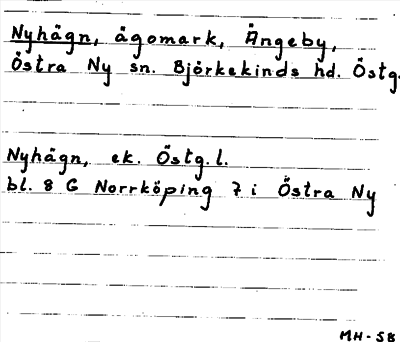 Nyhägn, ägomark, Ängeby,
Östra Ny sn. Björkekinds hd. Östg.
Nyhägn, ek. Östg. l.
bl. 8 G Norrköping 7 i Östra Ny
MH-58